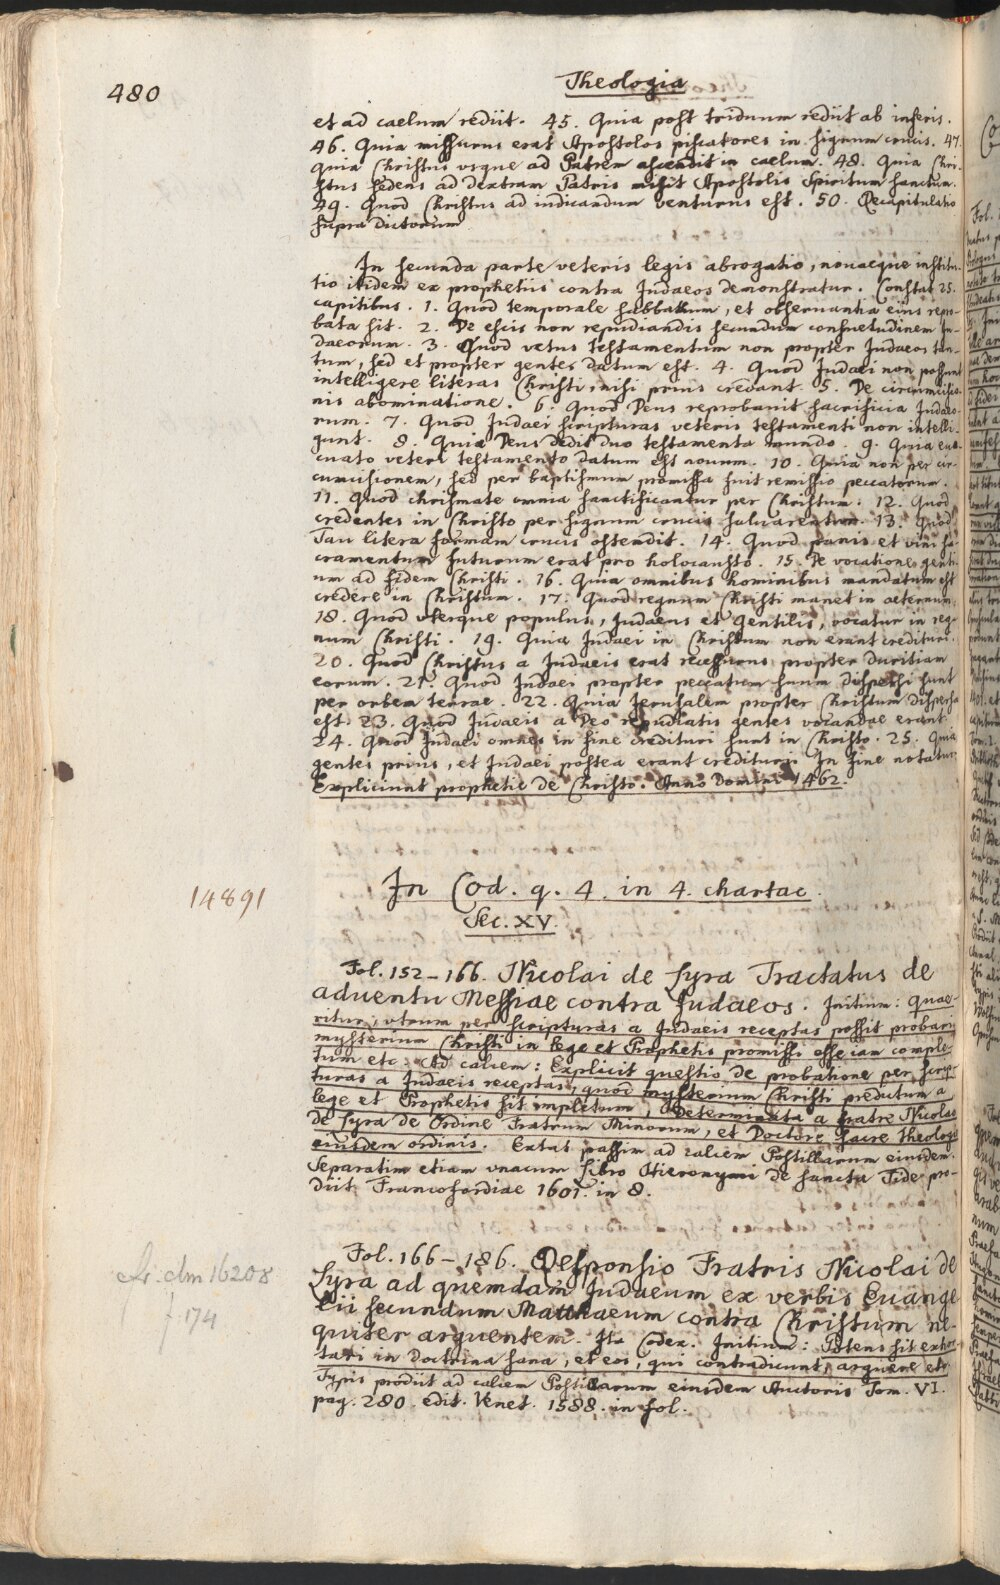 480
Theologia
et ad caelum rediit. 45. Quia post triduum rediit ab inferis.
46. Quia missurus erat Apostolos piscatores in signum crucis. 47.
Quia Christus usque ad Patrem ascendit in caelum. 48. Quia Chri-
stus sedens ad dextram Patris misit Apostolis Spiritum sanctum.
49. Quod Christus ad iudicandum venturus est. 50. Recapitulatio
supra dictorum.
In secunda parte veteris legis abrogatio, novaeque institu-
tio itidem ex prophetiis contra Judaeos demonstratur. Constat 25.
capitibus. 1. Quod temporale sabbathum, et observantia eius repro-
bata sit. 2. De escis non repudiandis secundum consuetudinem Ju-
daeorum. 3. Quod vetus testamentum non propter Judaeos tan-
tum, sed et propter gentes datum est. 4. Quod Judaei non possunt
intelligere literas Christi nisi prius credant. 5. De circumcisio-
nis abominatione. 6. Quod Deus reprobauit sacrificia Judaeo-
rum. 7. Quod Judaei scripturas veteris testamenti non intelli-
gunt. 8. Quia Deus dedit duo testamenta mundo. 9. Quia eua-
cuato veteri testamento datum est nouum. 10. Quia non per cir-
cumcisionem, sed per baptismum promissa fuit remissio peccatorum.
11. Quod chrismate omnia sanctificantur per Christum. 12. Quod
credentes in Christo per signum crucis saluarentur. 13. Quod
Tau litera formam crucis ostendit. 14. Quod panis et vini sa-
cramentum futurum erat pro holocausto. 15. De vocatione genti-
um ad fidem Christi. 16. Quia omnibus hominibus mandatum est
credere in Christum. 17. Quod regnum Christi manet in aeternum.
18. Quod vterque populus, Judaeus et Gentilis, vocatur in reg-
num Christi. 19. Quia Judaei in Christum non erant credituri.
20. Quod Christus a Judaeis erat recessurus propter duritiam
eorum. 21. Quod Judaei propter peccatum suum dispersi sunt
per orbem terrae. 22. Quia Jerusalem propter Christum dispersa
est. 23. Quod Judaeis a Deo repudiatis gentes vocandae erant.
24. Quod Judaei omnes in fine credituri sunt in Christo. 25. Quia
gentes prius, et Judaei postea erant credituri. In fine notatur
Expliciunt prophetie de Christo. Anno Domini 1462.
14891
In Cod. q. 4. in 4. chartac.
Sec. XV.
Fol. 152–166. Nicolai de Lyra Tractatus de
aduentu Messiae contra Judaeos. Initium: Quae-
ritur, vtrum per scripturas a Judaeis receptas possit probari
mysterium Christi in lege et Prophetis promissi esse iam comple-
tum etc. Ad calcem: Explicit questio de probatione per scrip-
turas a Judaeis receptas, quod mysterium Christi predictum a
lege et Prophetis sit impletum, determinata a fratre Nicolao
de Lyra de Ordine Fratrum Minorum, et Doctore sacre theologie
eiusdem ordinis. Extat passim ad calcem Postillarum eiusdem.
Separatim etiam vnacum libro Hieronymi de sancta Fide pro-
diit Francofordiae 1601. in 8.
clm 16208
f. 174
Fol. 166–186. Responsio Fratris Nicolai de
Lyra ad quemdam Judaeum ex verbis Euange-
lii secundum Matthaeum contra Christum ne-
quiter arguentem. Ita Codex. Initium: Potens sit exhor-
tari in doctrina sana, et eos, qui contradicunt, arguere etc.
Typis prodiit ad calcem Postillarum eiusdem Auctoris Tom. VI.
pag. 280. edit. Venet. 1588. in fol.